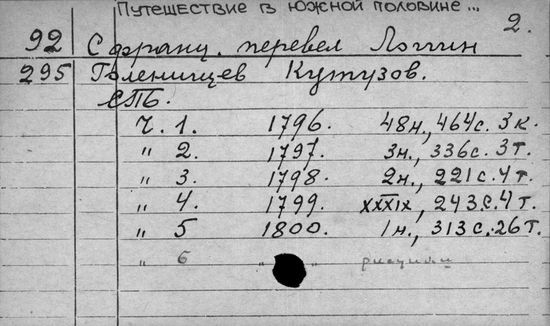 Путешествие в южной половине...
2.
92 С франц. перевел Логгин
295 Голенищев Кутузов.
СПБ.
Ч. 1. 1796. 48н., 464с. 3к.
" 2. 1797. 3н., 336с. 3т.
" 3. 1798. 2н., 221с. 4т.
" 4. 1799. XXXIX, 243с. 4т.
" 5 1800. 1н., 313с. 26т.
" 6 " " рисунки